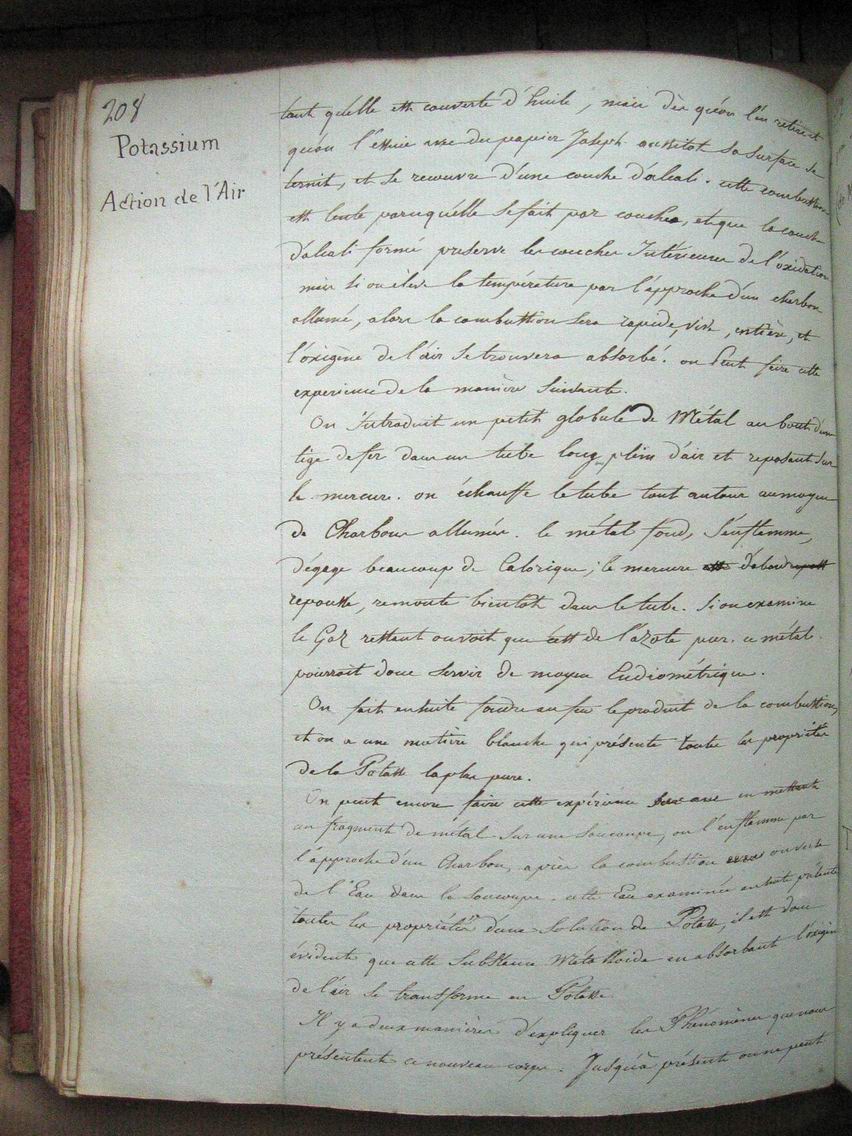 208
Potassium
Action de l'Air
tant qu'elle est couverte d'huile, mais dès qu'on l'en retire et
qu'on l'essuie avec du papier Joseph aussitot sa surface se
ternit, et se recouvre d'une couche d'alcali. cette combustion
est lente parcequ'elle se fait par couches, et que la couche
d'alcali formé preserve les couches Intérieures de l'oxidation
mais si on élève la température par l'approche d'un charbon
allumé, alors la combustion sera rapide, vive, entière, et
l'oxigène de l'air se trouvera absorbé. on peut faire cette
experience de la manière suivante.
On Introduit un petit globule de Métal au bout d'une
tige de fer dans un tube long, plein d'air et reposant sur
le mercure. on échauffe le tube tout autour au moyen
de Charbons allumés. le métal fond, s'enflamme,
dégage beaucoup de Calorique; le mercure d'abord
repoussé, remonte bientot dans le tube. Si on examine
le Gaz restant on voit que c'est de l'azote pur. ce métal
pourroit donc servir de moyen Eudiométrique.
On fait ensuite fondre au feu le produit de la combustion,
et on a une matière blanche qui présente toutes les propriétés
de la Potasse la plus pure.
On peut encore faire cette expérience en mettant
un fragment de métal sur une soucoupe, on l'enflamme par
l'approche d'un Charbon, après la combustion on verse
de l'Eau dans la soucoupe. cette Eau examinée ensuite présente
toutes les propriétés d'une solution de Potasse, il est donc
évident que cette substance Métalloide en absorbant l'oxigène
de l'air se transforme en Potasse.
Il y a deux manières d'expliquer les Phénomènes que nous
présentent ce nouveau corps. Jusqu'à présent on ne peut